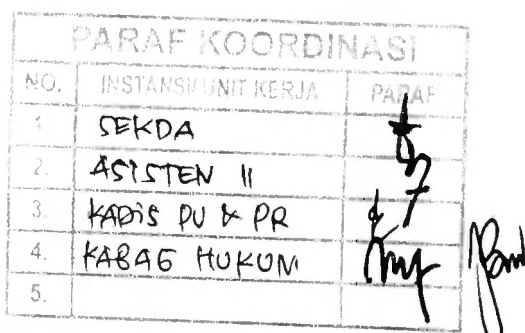 PARAF KOORDINASI
NO. INSTANSI/UNIT KERJA PARAF
1. SEKDA
2. ASISTEN II
3. KADIS PU & PR
4. KABAG HUKUM
5.